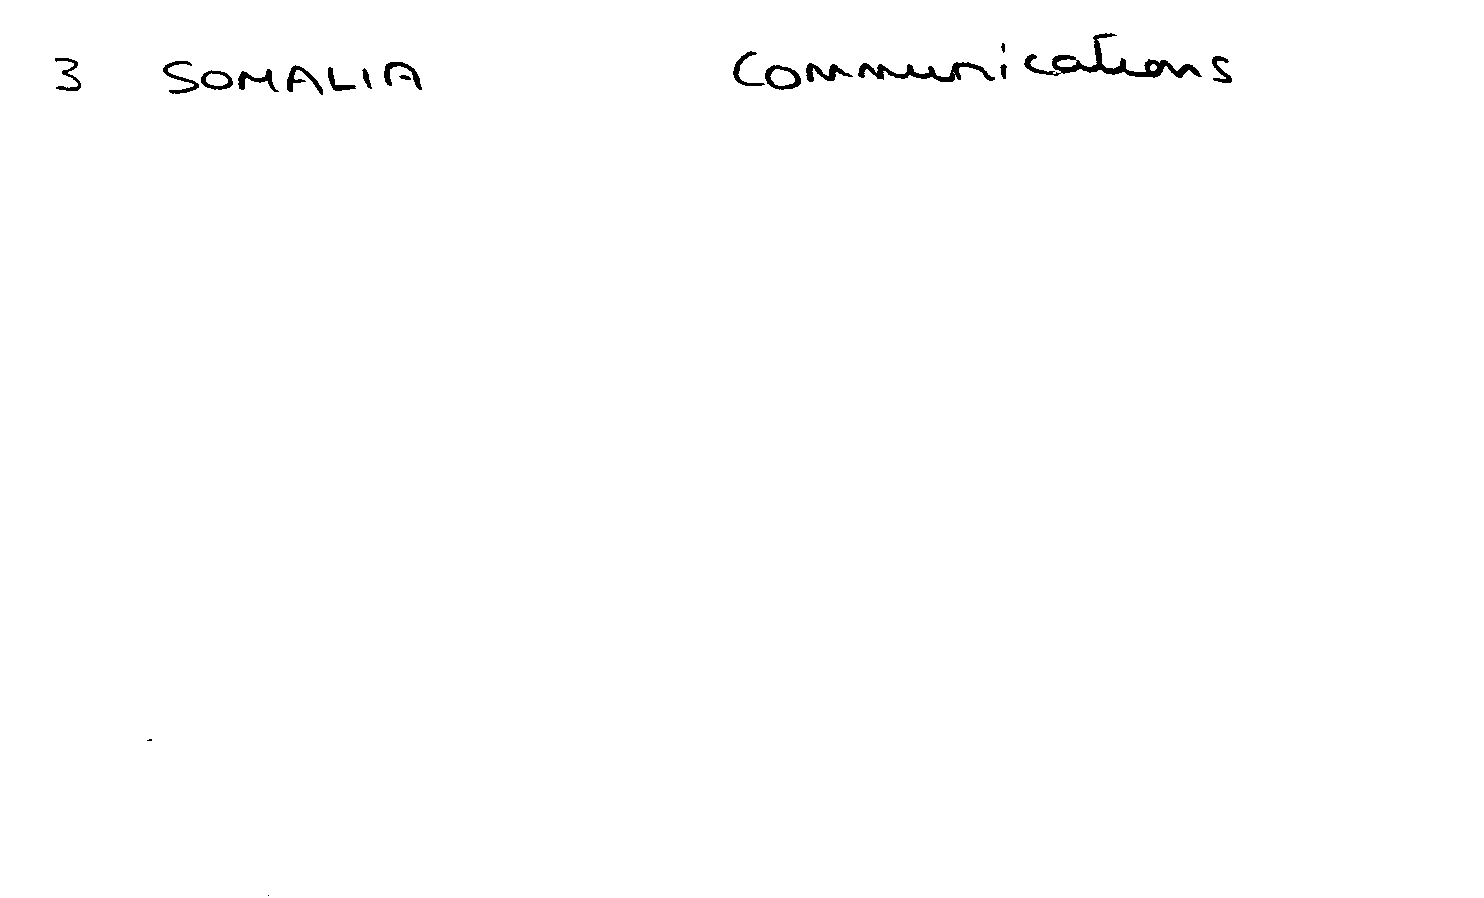 3 SOMALIA Communications